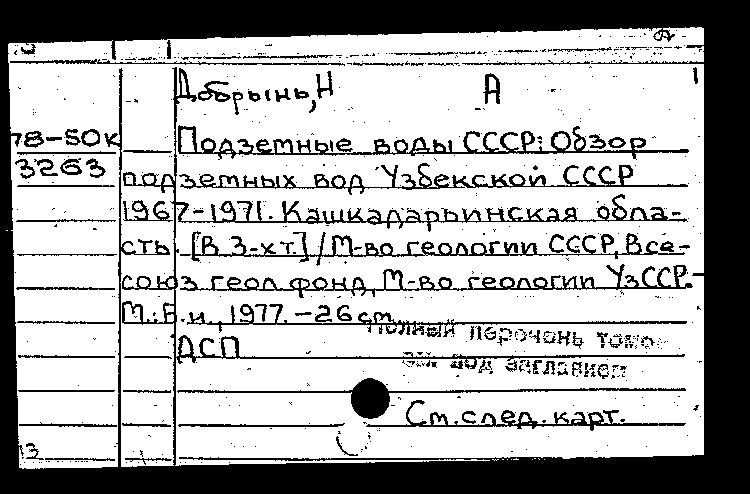 Добрынь, Н А
78-50к Подземные воды СССР: Обзор
3263 подземных вод Узбекской ССР
1967-1971. Кашкадарьинская обла-
сть. [В 3-х т.] / М-во геологии СССР, Все-
союз геол фонд, М-во геологии УзССР.-
М.: Б.и., 1977. - 26 см
Полный перечень томо-
см под заглавием
ДСП
См. след. карт.
13